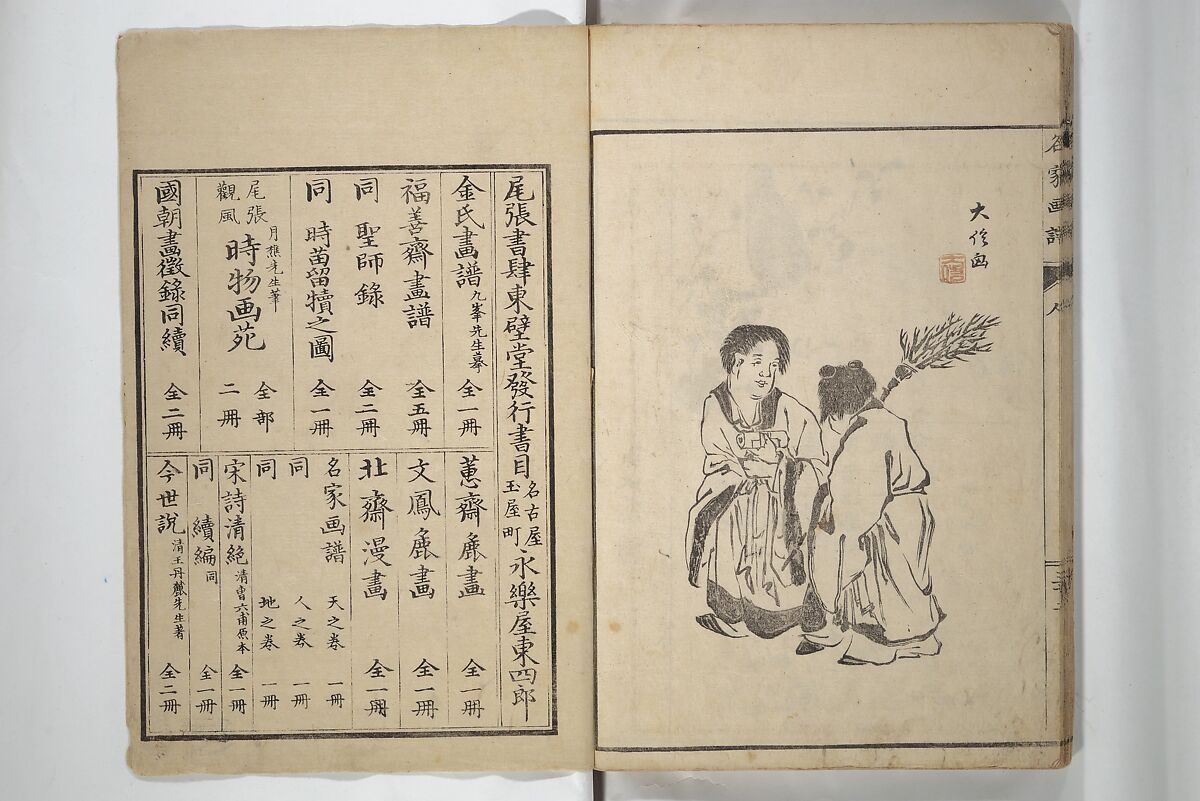 名家画譜
人
大
尾張書肆東壁堂發行書目
名古屋
玉屋町
永樂屋東四郎
金氏畫譜 九峯先生摹 全一冊
福善齋畫譜 全五冊
同 聖師錄 全二冊
同 時苗留犢之圖 全一冊
尾張
觀風
月樵先生筆
時物画苑
全部
二冊
國朝畫徵錄同續 全二冊
蕙齋麁畫 全一冊
文鳳麁畫 全一冊
北齋漫畫 全一冊
名家画譜 天之卷 一冊
同 人之卷 一冊
同 地之卷 一冊
宋詩清絕 清曹六甫原本 全一冊
同 續編 同 全一冊
今世說 清王丹麓先生著 全二冊